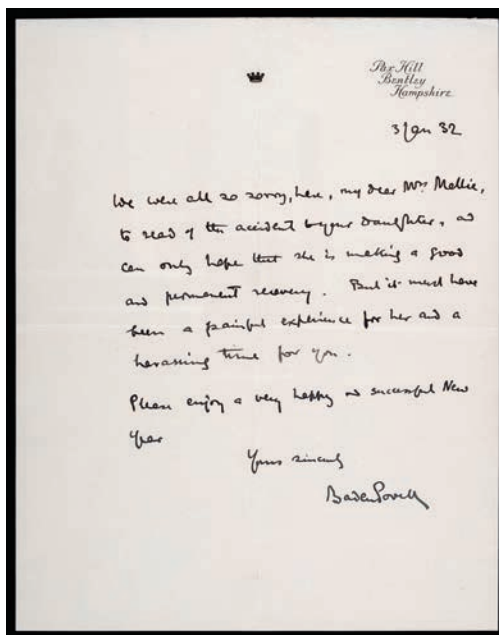 Pax Hill
Bentley
Hampshire
3 Jan 32
We were all so sorry, here, my dear Mrs Mellie,
to read of the accident to your daughter, and
can only hope that she is making a good
and permanent recovery. But it must have
been a painful experience for her and a
harassing time for you.
Please enjoy a very happy and successful New
Year
Yours sincerely
Baden Powell